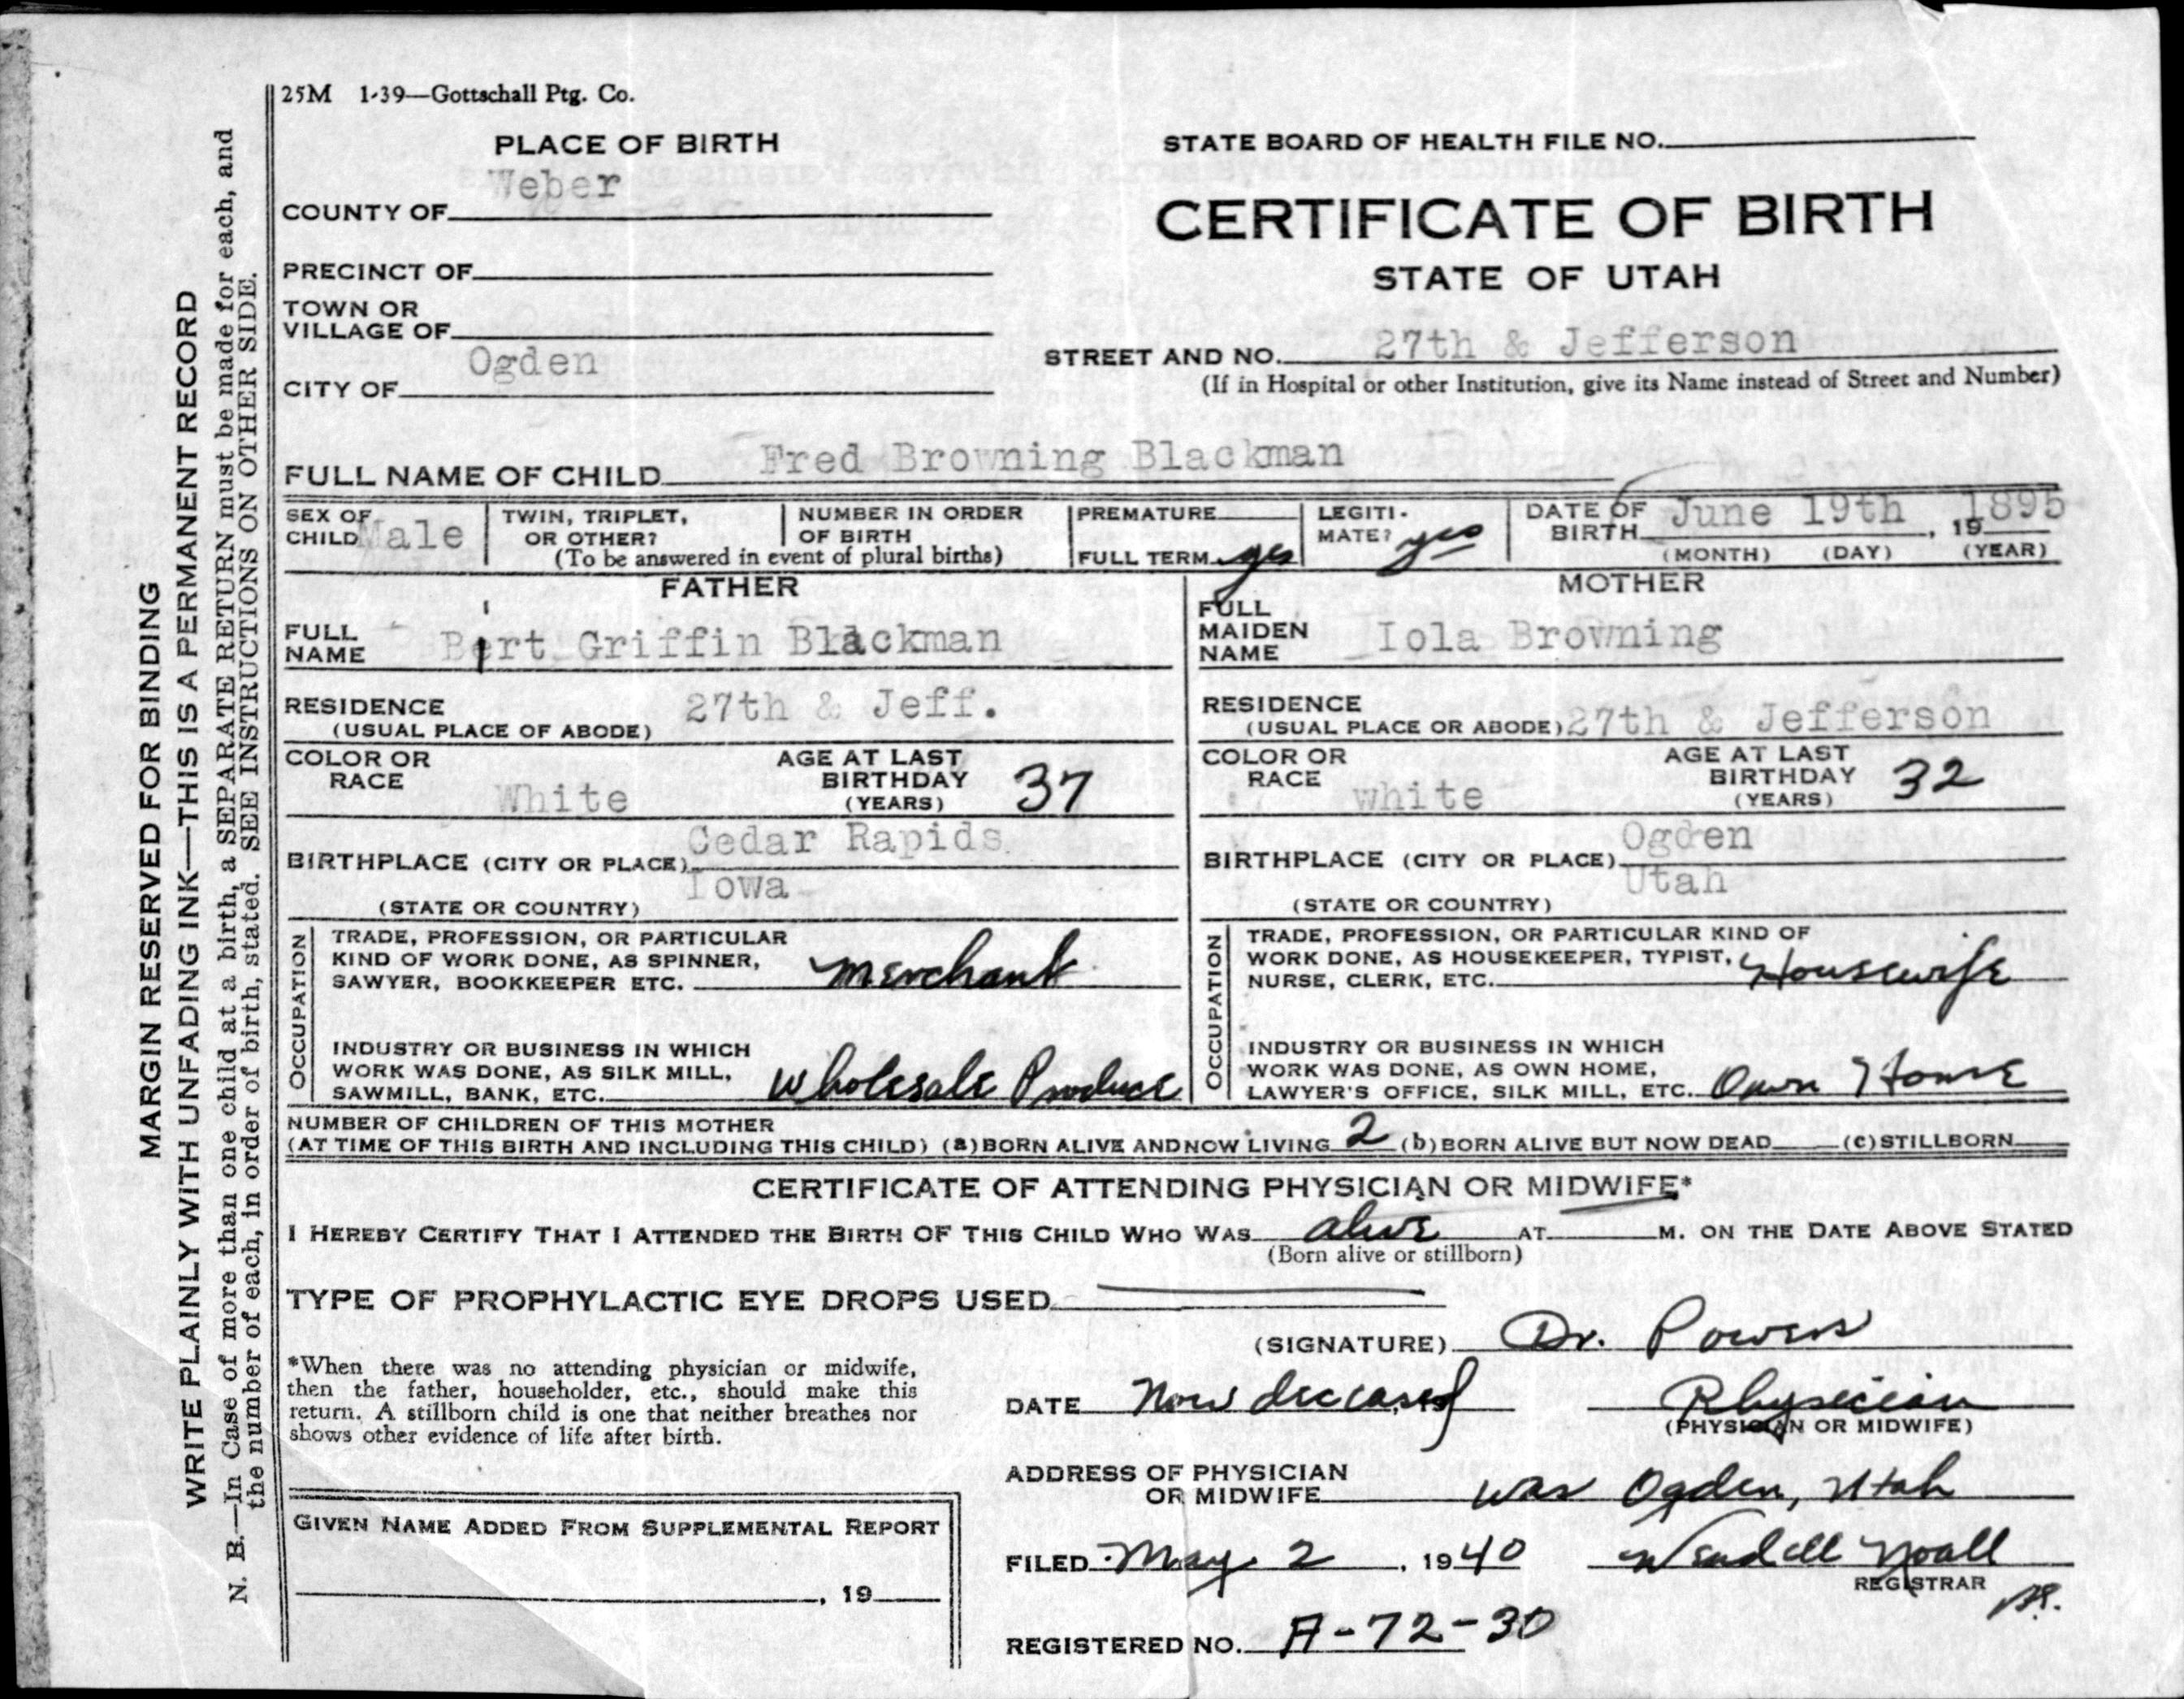 25M 1-39—Gottschall Ptg. Co.
PLACE OF BIRTH
COUNTY OF Weber
PRECINCT OF
TOWN OR
VILLAGE OF
CITY OF Ogden
STATE BOARD OF HEALTH FILE NO.
CERTIFICATE OF BIRTH
STATE OF UTAH
STREET AND NO. 27th & Jefferson
(If in Hospital or other Institution, give its Name instead of Street and Number)
FULL NAME OF CHILD Fred Browning Blackman
SEX OF
CHILD Male
TWIN, TRIPLET,
OR OTHER?
NUMBER IN ORDER
OF BIRTH
(To be answered in event of plural births)
PREMATURE
FULL TERM yes
LEGITI-
MATE? yes
DATE OF
BIRTH June 19th, 19 1895
(MONTH) (DAY) (YEAR)
FATHER
FULL
NAME Bert Griffin Blackman
RESIDENCE
(USUAL PLACE OF ABODE) 27th & Jeff.
COLOR OR
RACE White
AGE AT LAST
BIRTHDAY
(YEARS) 37
BIRTHPLACE (CITY OR PLACE) Cedar Rapids
(STATE OR COUNTRY) Iowa
OCCUPATION
TRADE, PROFESSION, OR PARTICULAR
KIND OF WORK DONE, AS SPINNER,
SAWYER, BOOKKEEPER ETC. Merchant
INDUSTRY OR BUSINESS IN WHICH
WORK WAS DONE, AS SILK MILL,
SAWMILL, BANK, ETC. Wholesale Produce
MOTHER
FULL
MAIDEN
NAME Iola Browning
RESIDENCE
(USUAL PLACE OR ABODE) 27th & Jefferson
COLOR OR
RACE white
AGE AT LAST
BIRTHDAY
(YEARS) 32
BIRTHPLACE (CITY OR PLACE) Ogden
(STATE OR COUNTRY) Utah
OCCUPATION
TRADE, PROFESSION, OR PARTICULAR KIND OF
WORK DONE, AS HOUSEKEEPER, TYPIST,
NURSE, CLERK, ETC. Housewife
INDUSTRY OR BUSINESS IN WHICH
WORK WAS DONE, AS OWN HOME,
LAWYER'S OFFICE, SILK MILL, ETC. Own Home
NUMBER OF CHILDREN OF THIS MOTHER
(AT TIME OF THIS BIRTH AND INCLUDING THIS CHILD) (a) BORN ALIVE AND NOW LIVING 2 (b) BORN ALIVE BUT NOW DEAD (c) STILLBORN
CERTIFICATE OF ATTENDING PHYSICIAN OR MIDWIFE*
I HEREBY CERTIFY THAT I ATTENDED THE BIRTH OF THIS CHILD WHO WAS alive AT M. ON THE DATE ABOVE STATED
(Born alive or stillborn)
TYPE OF PROPHYLACTIC EYE DROPS USED
*When there was no attending physician or midwife,
then the father, householder, etc., should make this
return. A stillborn child is one that neither breathes nor
shows other evidence of life after birth.
(SIGNATURE) Dr. Powers
DATE Now deceased Physician
(PHYSICIAN OR MIDWIFE)
ADDRESS OF PHYSICIAN
OR MIDWIFE was Ogden, Utah
FILED May 2, 1940 Wendell Noall
REGISTRAR
REGISTERED NO. A-72-30
GIVEN NAME ADDED FROM SUPPLEMENTAL REPORT
, 19
MARGIN RESERVED FOR BINDING
WRITE PLAINLY WITH UNFADING INK—THIS IS A PERMANENT RECORD
N. B.—In Case of more than one child at a birth, a SEPARATE RETURN must be made for each, and
the number of each, in order of birth, stated. SEE INSTRUCTIONS ON OTHER SIDE.